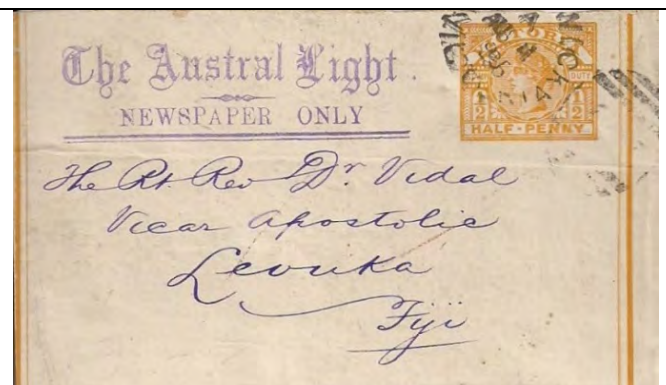 The Austral Light.
NEWSPAPER ONLY
DUTY
1/2 1/2
HALF-PENNY
The Rt. Rev Dr. Vidal
Vicar Apostolic
Levuka
Fiji